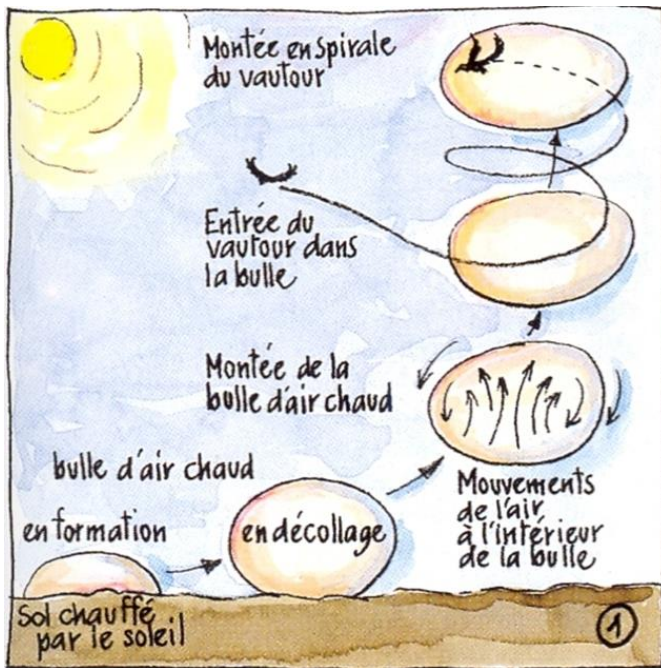 Montée en spirale
du vautour
Entrée du
vautour dans
la bulle
Montée de la
bulle d'air chaud
bulle d'air chaud
en formation
en décollage
Mouvements
de l'air
à l'intérieur
de la bulle
Sol chauffé
par le soleil
1